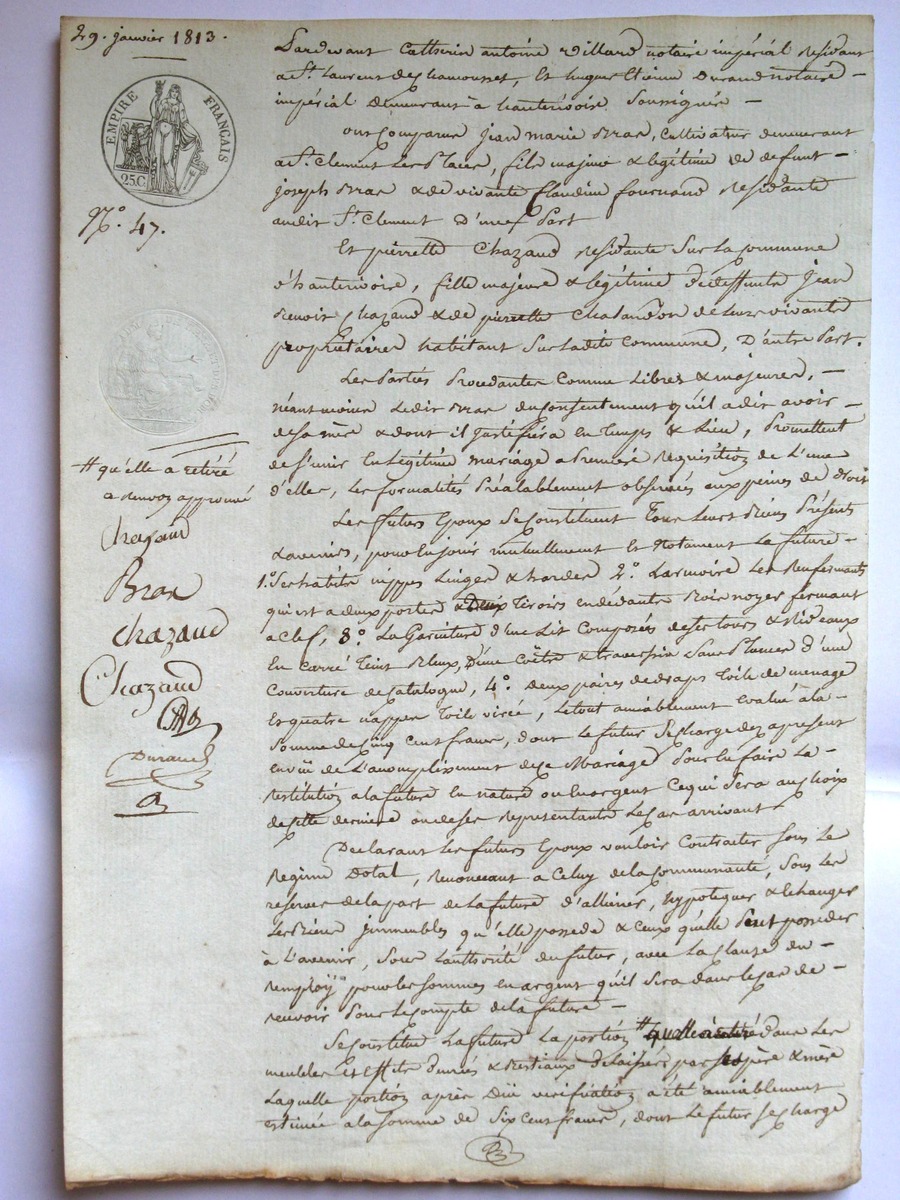 29. janvier 1813.
EMPIRE FRANÇAIS
25C
N.° 47.
Pardevant Catherin antoine Villard notaire impérial résidant
a St. Laurent de Chamousset, Et hugue Etienne Durand notaire
impérial demeurant à hauterivoire Soussignés
ont Comparus jean marie Bras, Cultivateur demeurant
a St. Clement Les places, fils majeur & legitime de defunt
joseph Bras & de vivante Claudine fournand residante
audit St. Clement D'une Part
Et pierrette Chazaud residante Sur La Commune
d'hauterivoire, fille majeure & legitime de deffunts jean
Benoit Chazaud & de pierrette Chalandon de Leurs vivants
propriétaires habitant Sur Ladite Commune, D'autre Part.
Les Parties Procedantes Comme Libres & majeures,
néantmoins Ledit Bras du Consentement qu'il a dit avoir
de sa mère & dont il justifiera En Temps & Lieu, Promettent
de s'unir En Legitime mariage a Première requisition de L'une
d'elles, Les formalités Préalablement observées aux peines de droit
Les futurs Epoux Se Constituent Tous Leurs Biens Présents
& avenirs, pour En jouir mutuellement Et Notament La future
1.° Ses habits nippes Linges & hardes 2.° Larmoire Les Renfermants
qui est a deux portes & deux Tiroirs en dedans Bois noyer fermant
a Clef, 3.° La Garniture d'une Lit Composés de ses tours & Rideaux
En Carré Teint Bleux, D'une Coêtre & traversin Sans Plumes d'une
Couverture de Catalogne, 4.° deux paires de draps Toile de menage
Et quatre nappes Toile , Le tout amiablement Evalué à la
Somme de Cinq Cent francs, dont Le futur Se charge dez apresent
En vüe de L'accomplissement de ce Mariage Pour En faire La
restitution a La future En nature ou En argent Ce qui Sera au choix
de Cette derniere ou de ses Représentants Le Cas arrivant
Declarant Les futurs Epoux vouloir Contracter Sous Le
Regime Dotal, renoncant a Celuy de La Communauté, Sous Les
reserves de La part de La future d'alliener, hypotequer & Echanger
Les Biens immeubles qu'elle possede & Ceux qu'elle Peut posseder
à L'avenir, Sous L'authorité du futur, avec La Clause du
remploy pour les Sommes En argent qu'il Sera dans le Cas de
recevoir Pour Le Compte de La future
Se Constitue La future La portion # dans Les
meubles Et Effets denrées & Bestiaux delaissés par Ses père & mère
Laquelle portion après Düe vérification a été amiablement
estimée a La Somme de Six Cent francs, dont Le futur Se Charge
# qu'elle a retiré
a renvoy approuvé
Chazaud
Bras
Chazaud
Chazaud
Durand